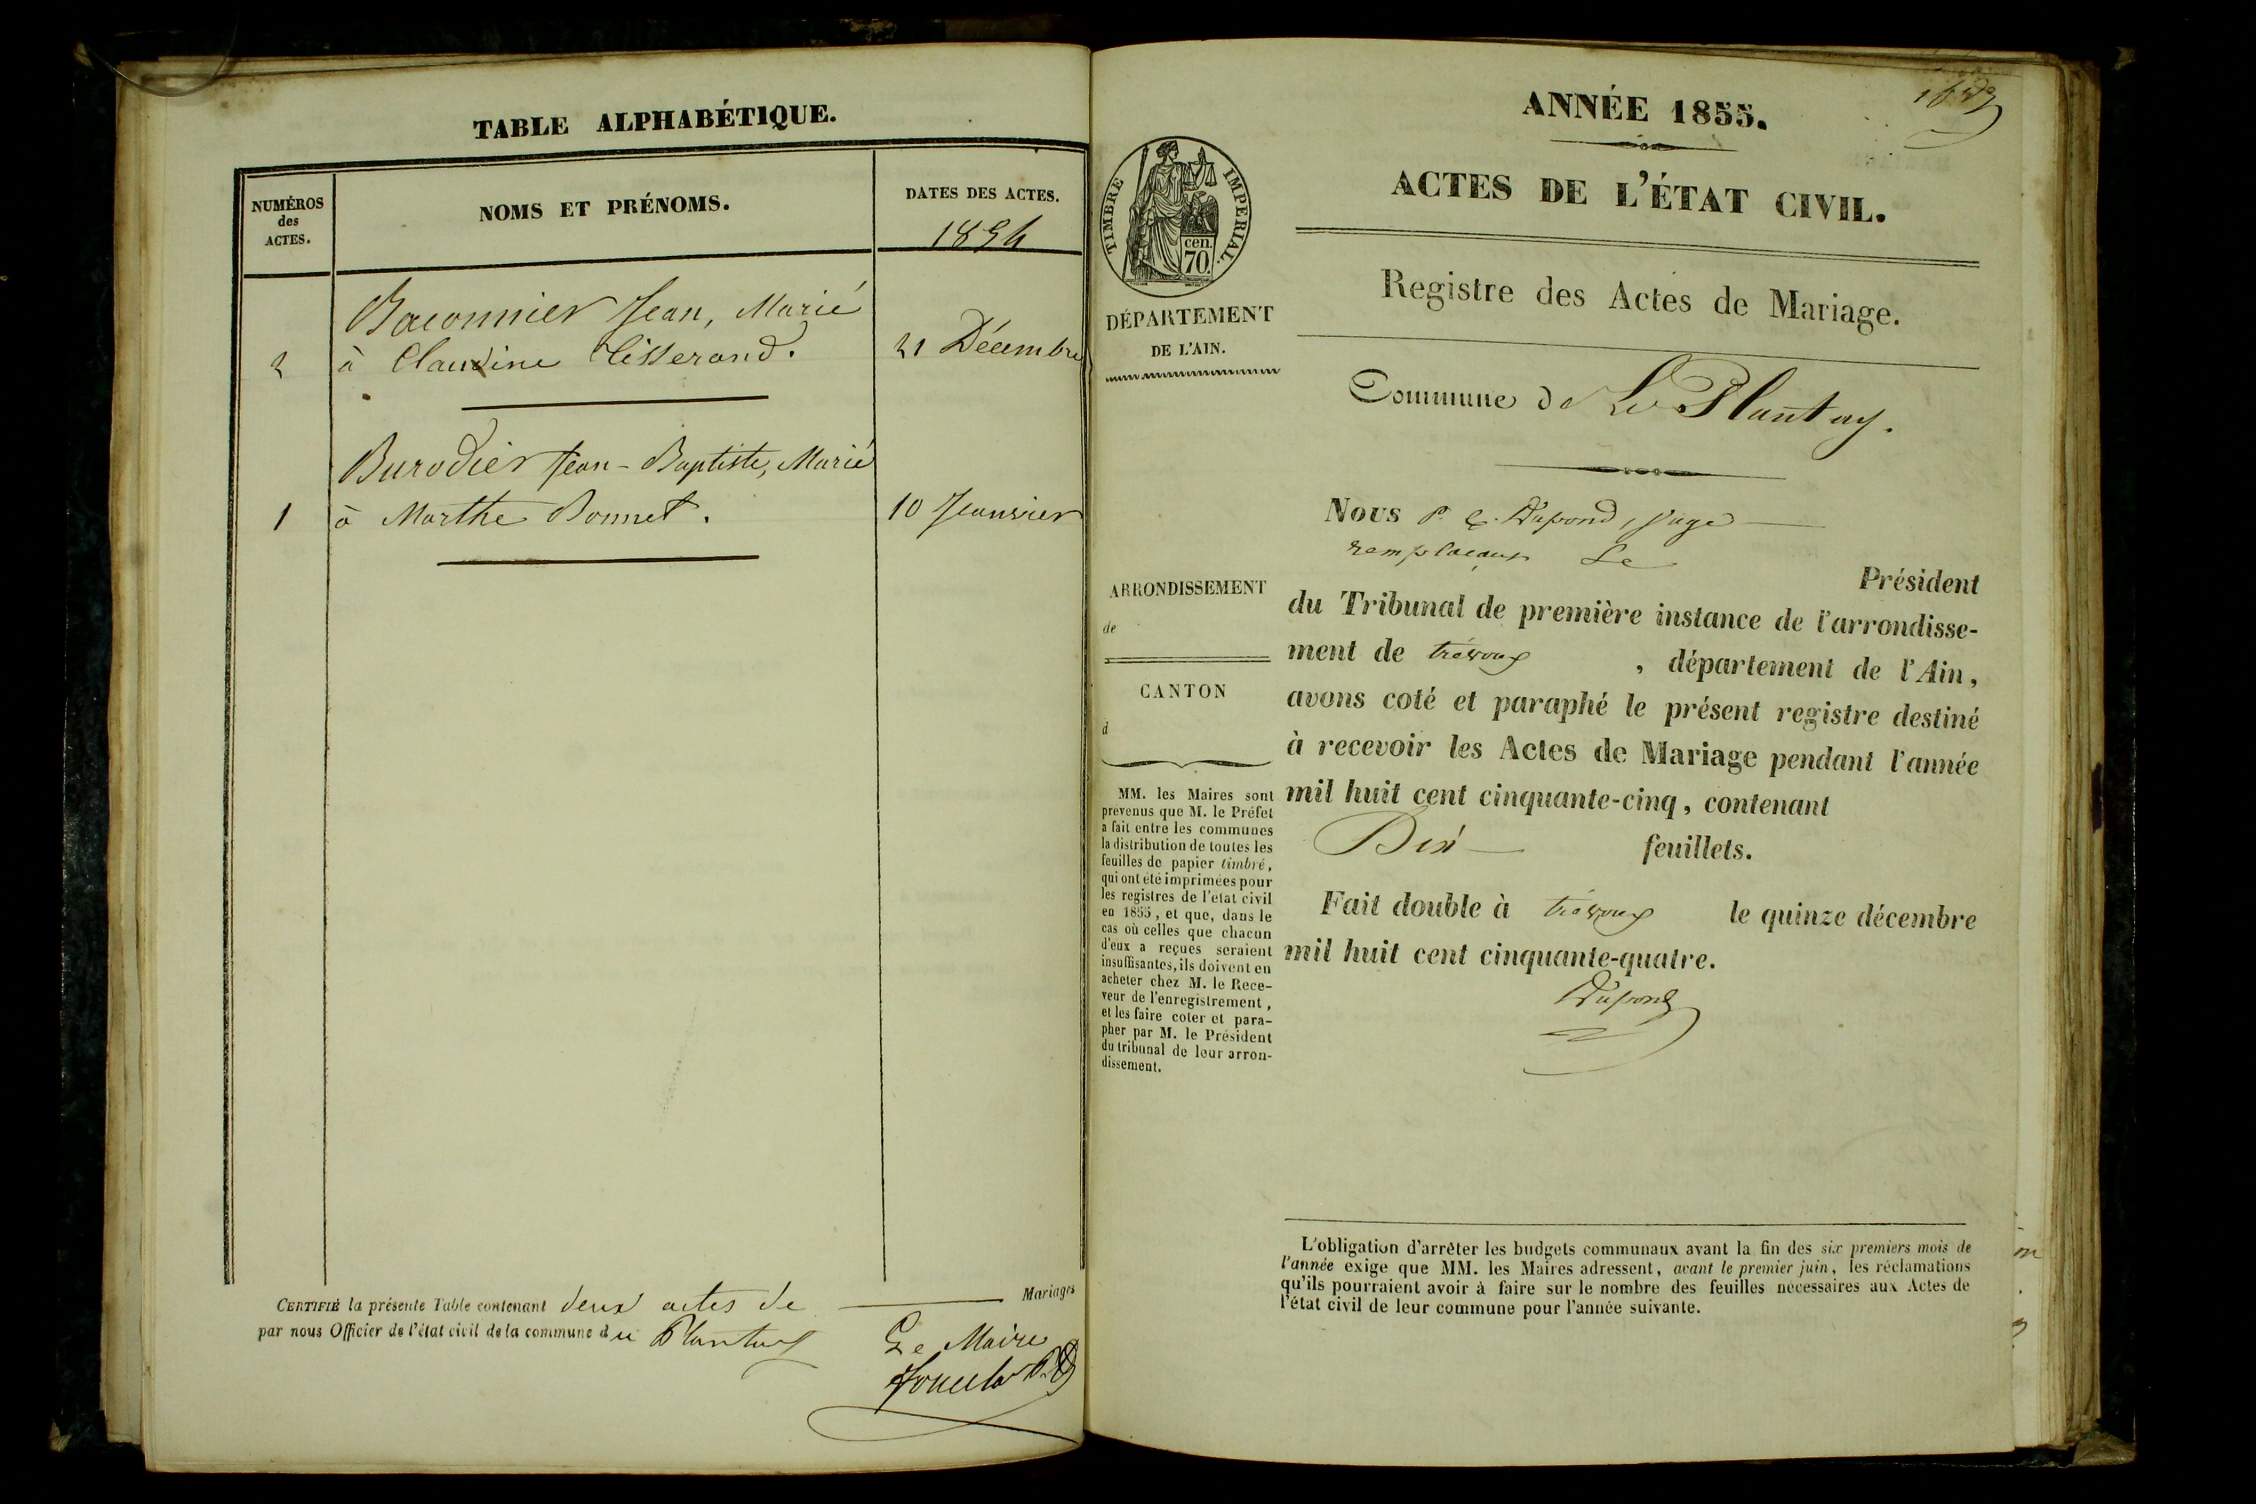 TABLE ALPHABÉTIQUE.
NUMÉROS
des
ACTES.
NOMS ET PRÉNOMS.
DATES DES ACTES.
1854
Baconnier Jean, Marié
2 à Claudine Tisserand. 21 Décembre
Burodier Jean-Baptiste, Marié
1 à Marthe Bonnet. 10 Janvier
CERTIFIÉ la présente Table contenant deux actes de Mariages
par nous Officier de l'état civil de la commune du Plantay
Le Maire
ANNÉE 1855.
ACTES DE L'ÉTAT CIVIL.
TIMBRE IMPERIAL.
cen.
70.
DÉPARTEMENT
DE L'AIN.
Registre des Actes de Mariage.
Commune de Le Plantay.
Nous P. Dupond, juge
remplaçant Le
Président
du Tribunal de première instance de l'arrondisse-
ment de trévoux, département de l'Ain,
avons coté et paraphé le présent registre destiné
à recevoir les Actes de Mariage pendant l'année
mil huit cent cinquante-cinq, contenant
Dix feuillets.
Fait double à trévoux le quinze décembre
mil huit cent cinquante-quatre.
Dupond
ARRONDISSEMENT
de
CANTON
d
MM. les Maires sont
prevenus que M. le Préfet
a fait entre les communes
la distribution de toutes les
feuilles de papier timbré,
qui ont été imprimées pour
les registres de l'etat civil
en 1855, et que, dans le
cas où celles que chacun
d'eux a reçues seraient
insuffisantes, ils doivent en
acheter chez M. le Rece-
veur de l'enregistrement,
et les faire coter et para-
pher par M. le Président
du tribunal de leur arron-
dissement.
L'obligation d'arrêter les budgets communaux avant la fin des six premiers mois de
l'année exige que MM. les Maires adressent, avant le premier juin, les réclamations
qu'ils pourraient avoir à faire sur le nombre des feuilles nécessaires aux Actes de
l'état civil de leur commune pour l'année suivante.